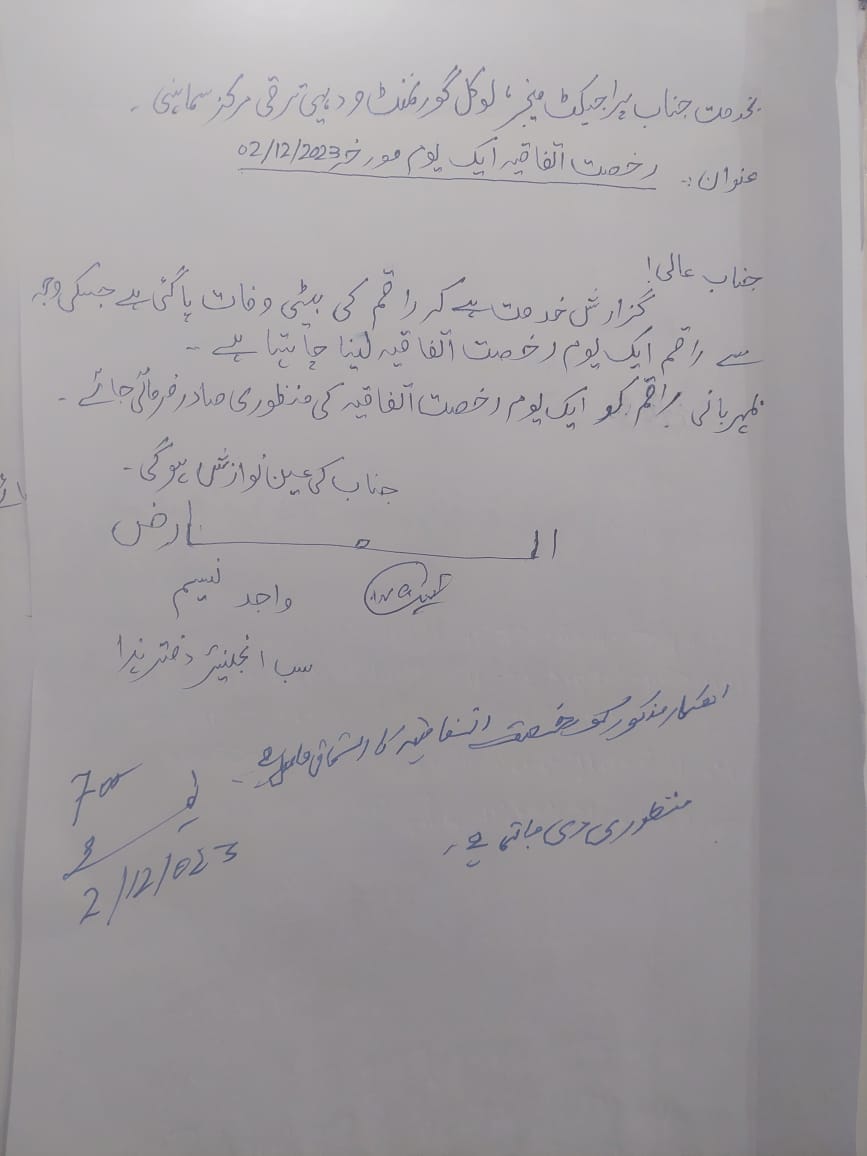 بخدمت جناب پراجیکٹ منیجر، لوکل گورنمنٹ و دیہی ترقی مرکز سماہنی۔
عنوان:۔ رخصت اتفاقیہ ایک یوم مورخہ 02/12/2023
جناب عالی!
گزارش خدمت ہے کہ راقم کی بیٹی وفات پا گئی ہے جسکی وجہ
سے راقم ایک یوم رخصت اتفاقیہ لینا چاہتا ہے۔
بمہربانی راقم کو ایک یوم رخصت اتفاقیہ کی منظوری صادر فرمائی جائے۔
جناب کی عین نوازش ہو گی۔
العارض
واجد نسیم
سب انجینئر دفتر ہذا
اہلکار مذکور کو رخصت اتفاقیہ کا استحقاق حاصل ہے۔
منظوری دی جاتی ہے۔
2/12/023